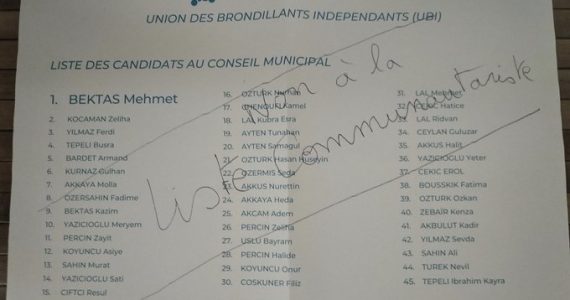 UNION DES BRONDILLANTS INDEPENDANTS (UBI)
LISTE DES CANDIDATS AU CONSEIL MUNICIPAL
1. BEKTAS Mehmet
2. KOCAMAN Zeliha
3. YILMAZ Ferdi
4. TEPELI Busra
5. BARDET Armand
6. KURNAZ Gulhan
7. AKKAYA Molla
8. ÖZERSAHIN Fadime
9. BEKTAS Kazim
10. YAZICIOGLU Meryem
11. PERCIN Zayit
12. KOYUNCU Asiye
13. SAHIN Murat
14. YAZICIOGLU Sati
15. CIFTCI Resul
16. OZTURK
17. CHENOUFI Kamel
18. LAL Kubra Esra
19. AYTEN Tunahan
20. AYTEN Samagul
21. OZTURK Hasan Huseyin
22. OZERMIS Seda
23. AKKUS Nurettin
24. AKKAYA Heda
25. AKCAM Adem
26. PERCIN Zeliha
27. USLU Bayram
28. PERCIN Halide
29. KOYUNCU Onur
30. COSKUNER Filiz
31. LAL Mehmet
32. CEKIC Hatice
33. LAL Ridvan
34. CEYLAN Guluzar
35. AKKUS Halit
36. YAZICIOGLU Yeter
37. CEKIC EROL
38. BOUSSKIK Fatima
39. OZTURK Ozkan
40. ZEBAIR Kenza
41. AKBULUT Kadir
42. YILMAZ Sevda
43. SAHIN Ali
44. TUREK Nevil
45. TEPELI Ibrahim Kayra
Non à la
Liste Communautariste